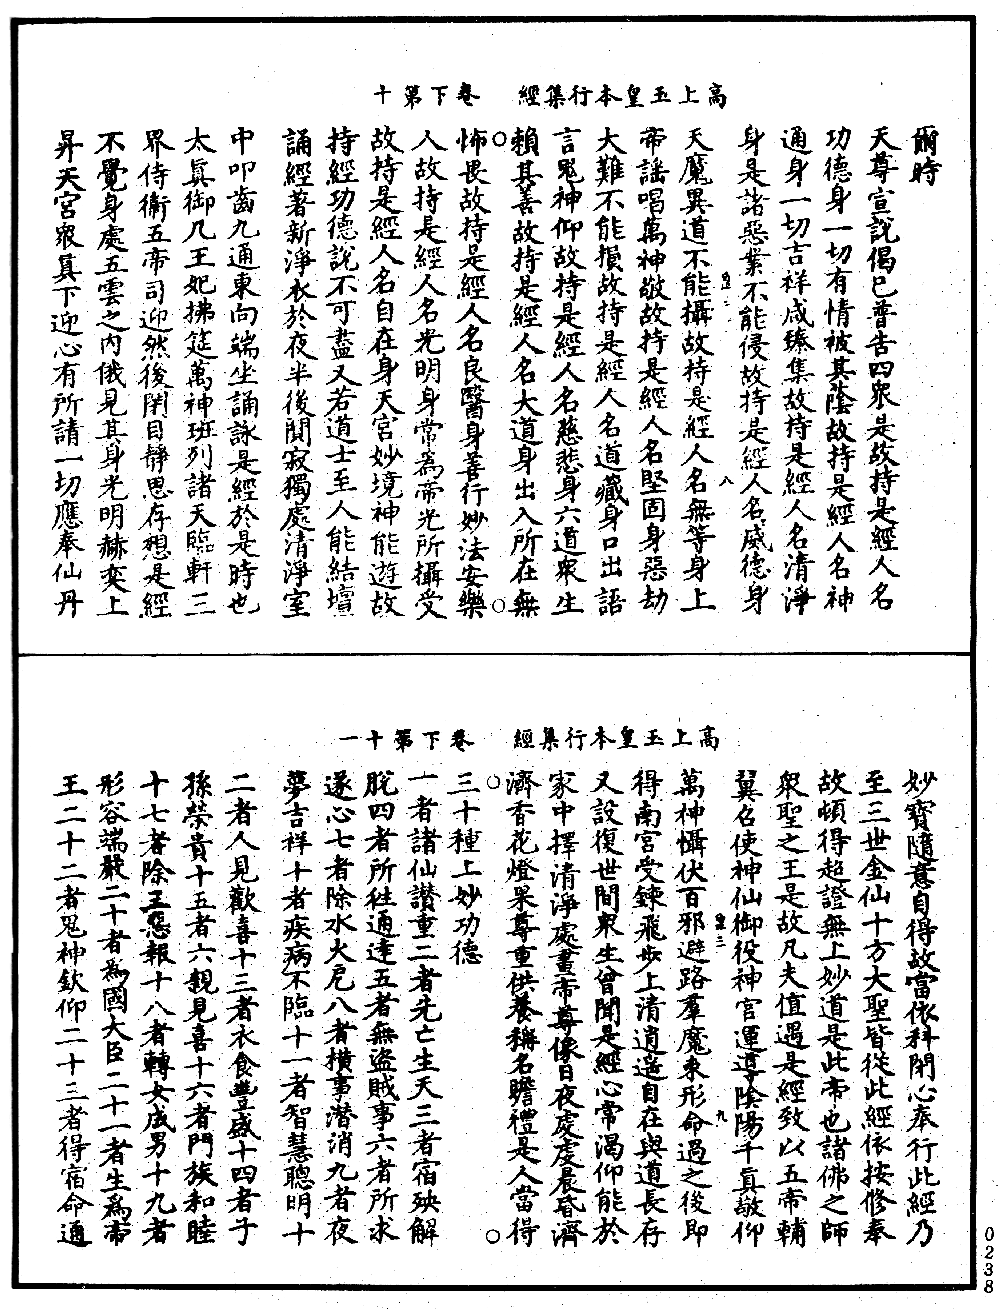 高上玉皇本行集經　卷下第十
爾時
天尊宣說偈已普告四眾是故持是經人名
功德身一切有情被其蔭故持是經人名神
通身一切吉祥咸臻集故持是經人名清淨
身是諸惡業不能侵故持是經人名威德身
天魔異道不能攝故持是經人名無等身上
帝謠唱萬神敬故持是經人名堅固身惡劫
大難不能損故持是經人名道藏身口出語
言鬼神仰故持是經人名慈悲身六道眾生
賴其善故持是經人名大道身出入所在無
怖畏故持是經人名良醫身善行妙法安樂
人故持是經人名光明身常為帝光所攝受
故持是經人名自在身天宮妙境神能遊故
持經功德說不可盡又若道士至人能結壇
誦經著新淨衣於夜半後閴寂獨處清淨室
中叩齒九通東向端坐誦詠是經於是時也
太真御几王妃拂筵萬神班列諸天臨軒三
界侍衛五帝司迎然後閉目靜思存想是經
不覺身處五雲之內俄見其身光明赫奕上
昇天宮眾真下迎心有所請一切應奉仙丹
皇二
八
高上玉皇本行集經　卷下第十一
妙寶隨意自得故當依科閉心奉行此經乃
至三世金仙十方大聖皆從此經依按修奉
故頓得超證無上妙道是此帝也諸佛之師
眾聖之王是故凡夫值遇是經致以五帝輔
翼名使神仙御役神官運導陰陽千真敬仰
萬神懾伏百邪避路羣魔束形命過之後即
得南宮受鍊飛步上清逍遙自在與道長存
又設復世間眾生曾聞是經心常渴仰能於
家中擇清淨處畫帝尊像日夜虔虔晨昏濟
濟香花燈果尊重供養稱名瞻禮是人當得
三十種上妙功德
一者諸仙讃重二者先亡生天三者宿殃解
脫四者所往通達五者無盜賊事六者所求
遂心七者除水火厄八者橫事潛消九者夜
夢吉祥十者疾病不臨十一者智慧聰明十
二者人見歡喜十三者衣食豐盛十四者子
孫榮貴十五者六親見喜十六者門族和睦
十七者除三惡報十八者轉女成男十九者
形容端嚴二十者為國大臣二十一者生為帝
王二十二者鬼神欽仰二十三者得宿命通
皇三
九
0238